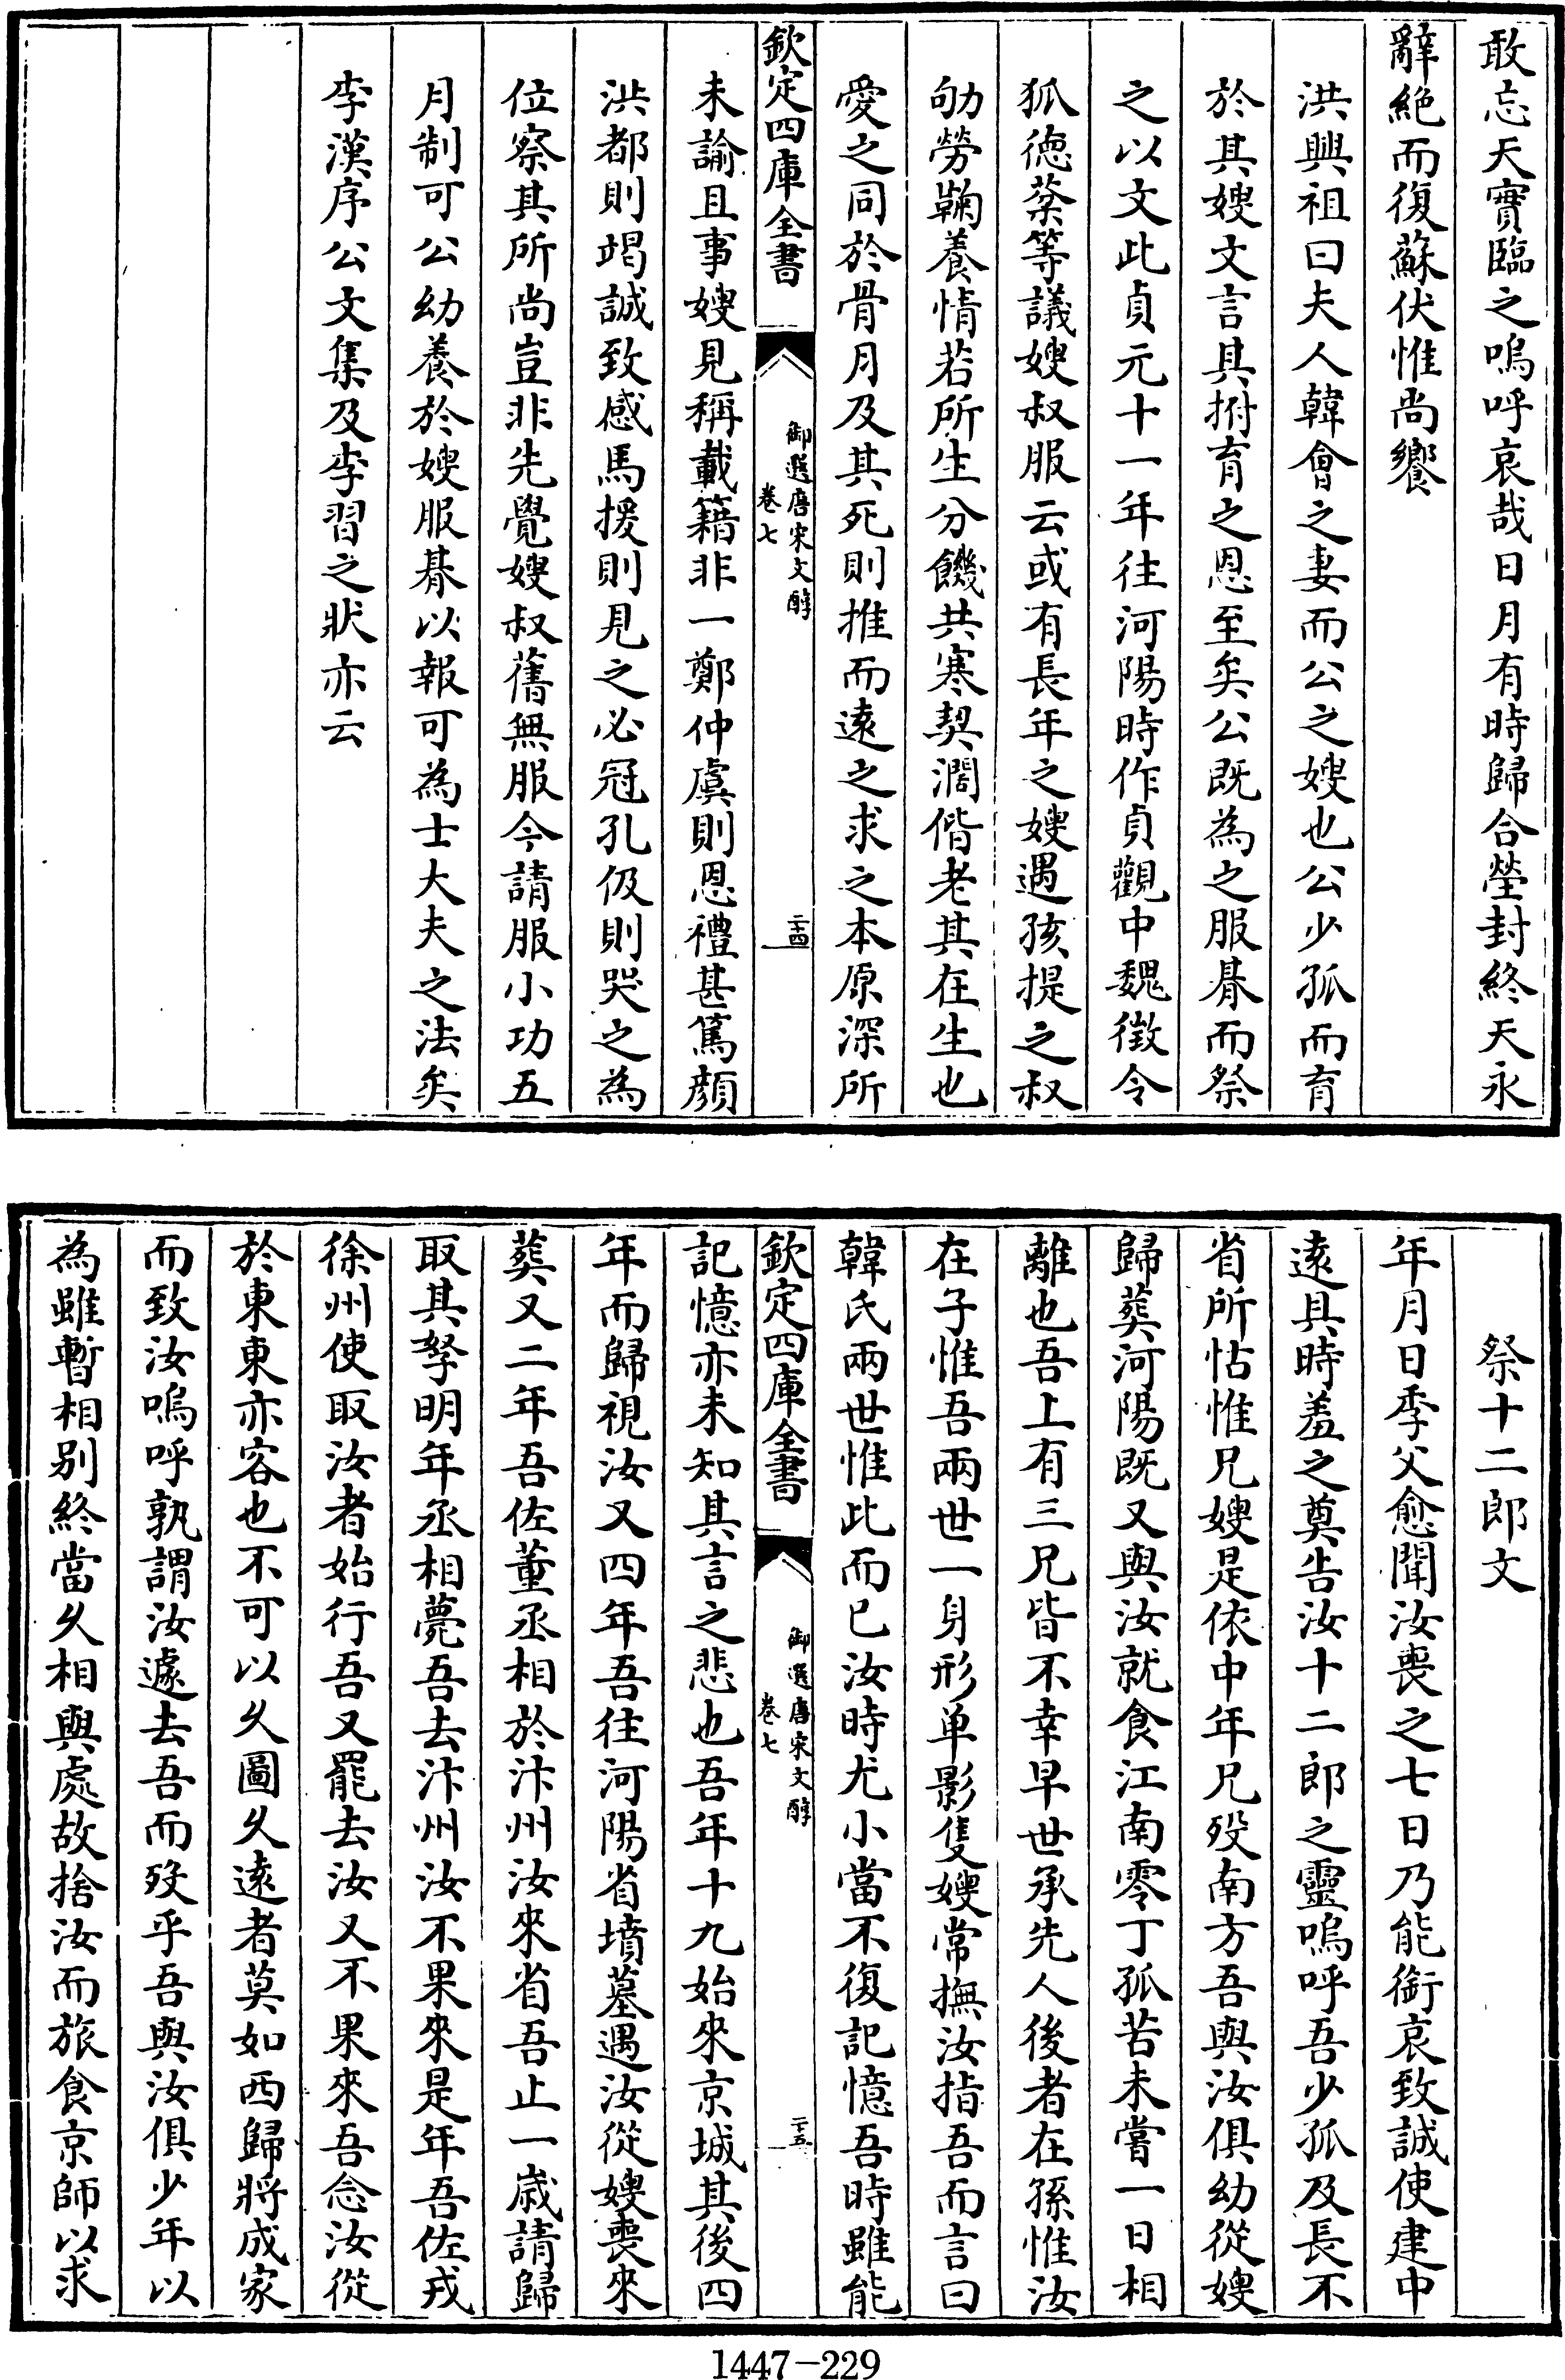 敢忘天實臨之嗚呼哀哉日月有時歸合塋封終天永
辭絶而復蘇伏惟尚饗
洪興祖曰夫人韓會之妻而公之嫂也公少孤而育
於其嫂文言其拊育之恩至矣公既為之服朞而祭
之以文此貞元十一年往河陽時作貞觀中魏徴令
狐徳棻等議嫂叔服云或有長年之嫂遇孩提之叔
劬勞鞠養情若所生分饑共寒契濶偕老其在生也
愛之同於骨月及其死則推而逺之求之本原深所
欽定四庫全書
御選唐宋文醇
卷七
二十四
未諭且事嫂見稱載籍非一鄭仲虞則恩禮甚篤顔
洪都則竭誠致感馬援則見之必冠孔伋則哭之為
位察其所尚豈非先覺嫂叔舊無服今請服小功五
月制可公幼養於嫂服朞以報可為士大夫之法矣
李漢序公文集及李習之狀亦云
祭十二郎文
年月日季父愈聞汝喪之七日乃能銜哀致誠使建中
逺具時羞之奠告汝十二郎之靈嗚呼吾少孤及長不
省所怙惟兄嫂是依中年兄歿南方吾與汝俱幼從嫂
歸葬河陽既又與汝就食江南零丁孤苦未嘗一日相
離也吾上有三兄皆不幸早世承先人後者在孫惟汝
在子惟吾兩世一身形单影隻嫂常撫汝指吾而言曰
韓氏兩世惟此而已汝時尤小當不復記憶吾時雖能
欽定四庫全書
御選唐宋文醇
卷七
二十五
記憶亦未知其言之悲也吾年十九始來京城其後四
年而歸視汝又四年吾往河陽省墳墓遇汝從嫂喪來
葬又二年吾佐董丞相於汴州汝來省吾止一嵗請歸
取其孥明年丞相薨吾去汴州汝不果來是年吾佐戎
徐州使取汝者始行吾又罷去汝又不果來吾念汝從
於東東亦客也不可以乆圖乆逺者莫如西歸將成家
而致汝嗚呼孰謂汝遽去吾而歿乎吾與汝俱少年以
為雖暫相别終當乆相與處故捨汝而旅食京師以求
1447-229